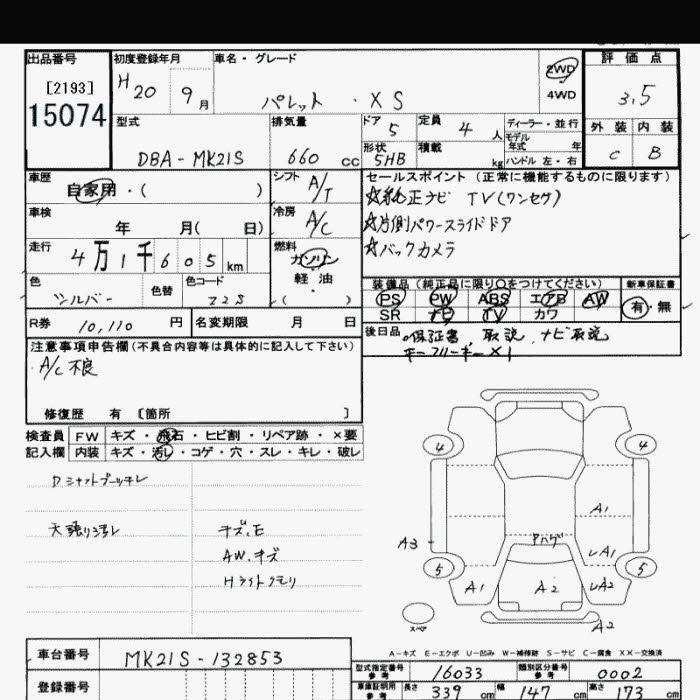 出品番号 初度登録年月 車名・グレード 評価点
[2193] H20 9月 パレット・XS 2WD 3.5
15074 4WD
型式 排気量 ドア 5 定員 4人 ディーラー・並行 外装 内装
DBA-MK21S 660cc 形状 5HB 積載 kg モデル年式 年 C B
ハンドル 左・右
車歴 シフト A/T セールスポイント(正常に機能するものに限ります)
自家用・( ) ☆純正ナビ TV(ワンセグ)
車検 冷房 A/C ☆片側パワースライドドア
年 月( 日) ☆バックカメラ
走行 燃料
4万1千605km ガソリン・軽油
色 色替 色コード 装備品(純正品に限り○をつけてください) 新車保証書
シルバー Z2S ( ) PS PW ABS エアB AW 有・無
SR ナビ TV カワ
R券 10,110円 名変期限 月 日 後日品 保証書、取説、ナビ取説
キーフリーキー×1
注意事項申告欄(不具合内容等は具体的に記入して下さい)
A/C不良
修復歴 有 〔箇所 〕
検査員 FW キズ・飛石・ヒビ割・リペア跡・×要
記入欄 内装 キズ・汚レ・コゲ・穴・スレ・キレ・破レ
Dシャフトブーツ切レ
天張リ汚レ キズ、E
AW、キズ
Hライトクモリ
4 4
A1
A3 アハゲ A1
5 5
A1 A2 A2
スペア A2
A-キズ E-エクボ U-凹み W-補修跡 S-サビ C-腐食 XX-交換済
車台番号 MK21S-132853 型式指定番号 参考 16033 類別区分番号 参考 0002
登録番号 車庫証明用 参考 長さ 339cm 幅 147cm 高さ 173cm